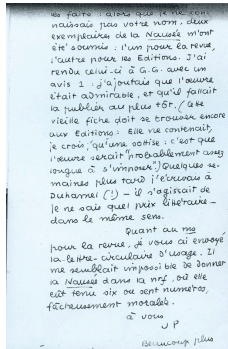 les faits : alors que je ne con-
naissais pas votre nom, deux
exemplaires de la Nausée m'ont
été soumis : l'un pour la revue,
l'autre pour les Editions. J'ai
rendu celui-ci à G.G. avec un
avis 1 : j'ajoutais que l'œuvre
était admirable, et qu'il fallait
la publier au plus tôt. (cette
vieille fiche doit se trouver encore
aux Editions : Elle ne contenait,
je crois, qu'une sottise : c'est que
l'œuvre serait "probablement assez
longue à s'imposer") Quelques se-
maines plus tard j'écrivais à
Duhamel (!) — il s'agissait de
je ne sais quel prix littéraire —
dans le même sens.
Quant au ms
pour la revue, je vous ai envoyé
la lettre-circulaire d'usage. Il
me semblait impossible de donner
la Nausée dans la nrf, où elle
eût tenu six ou sept numéros,
fâcheusement morcelée.
à vous
J P
Beaucoup plus